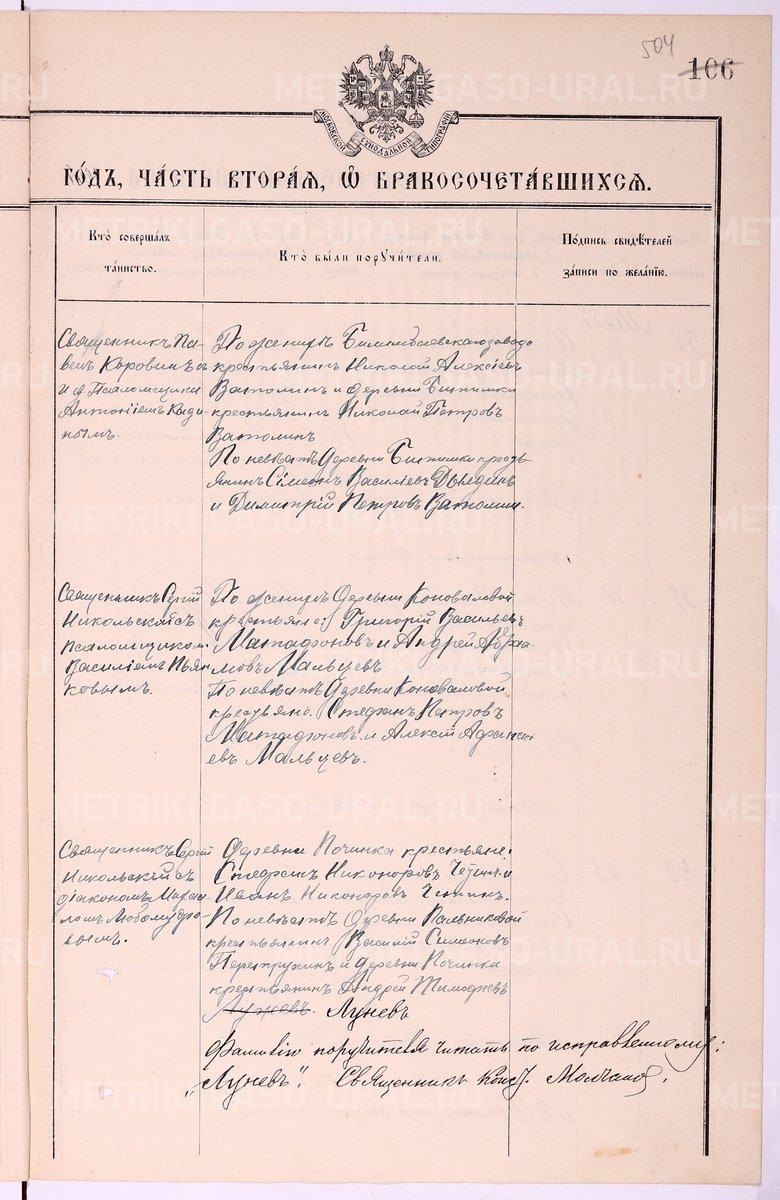 504
106
МОСКОВСКОЙ СѴНОДАЛЬНОЙ ТИПОГРАФІИ
ГО́ДЪ, ЧА́СТЬ ВТОРА́Я, Ѡ҆ БРАКОСОЧЕТА́ВШИХСЯ.
Кто̀ соверша́лъ
та́инство.
Кто̀ бы́ли порꙋчи́тели.
По́дпись свидѣ́телей
за́писи по жела́нїю.
Священникъ Па-
велъ Коровинъ съ
и.д. Псаломщика
Антоніемъ Киди-
нымъ.
По женихѣ Билимбаевскаго завода
крестьянинъ Николай Алексіевъ
Ватолинъ и деревни Битимки
крестьянинъ Николай Петровъ
Ватолинъ
По невѣстѣ Деревни Битимки кресть-
янинъ Сімеонъ Василіевъ
и Димитрій Петровъ Ватолин.
Священникъ Сергій
Никольскій съ
псаломщиком.
Василіемъ Пьян-
ковымъ.
По женихѣ Деревни Коноваловой
крестьяне: Григорій Васильевъ
Матафоновъ и Андрей Абра-
мовъ Мальцевъ
По невѣстѣ Деревни Коноваловой
крестьяне. Стефанъ Петровъ
Матафоновъ. и Алексій Афанасі-
евъ Мальцевъ.
Священникъ Сергій
Никольскій съ
діакономъ Михаи-
ломъ Любомудро-
вымъ.
Деревни Починка крестьяне:
Стефанъ Никоноровъ и
Иванъ Никоноровъ
По невѣстѣ Деревни Пальниковой
крестьянинъ Василій Симеоновъ
Перетружин и деревни Починка
крестьянинъ Андрей Тимофеевъ
Лужевъ. Луневъ
Фамилію поручителя читать по исправленному:
„Луневъ". Священникъ Конст. Молчанов.
METRIKI.GASO-URAL.RU